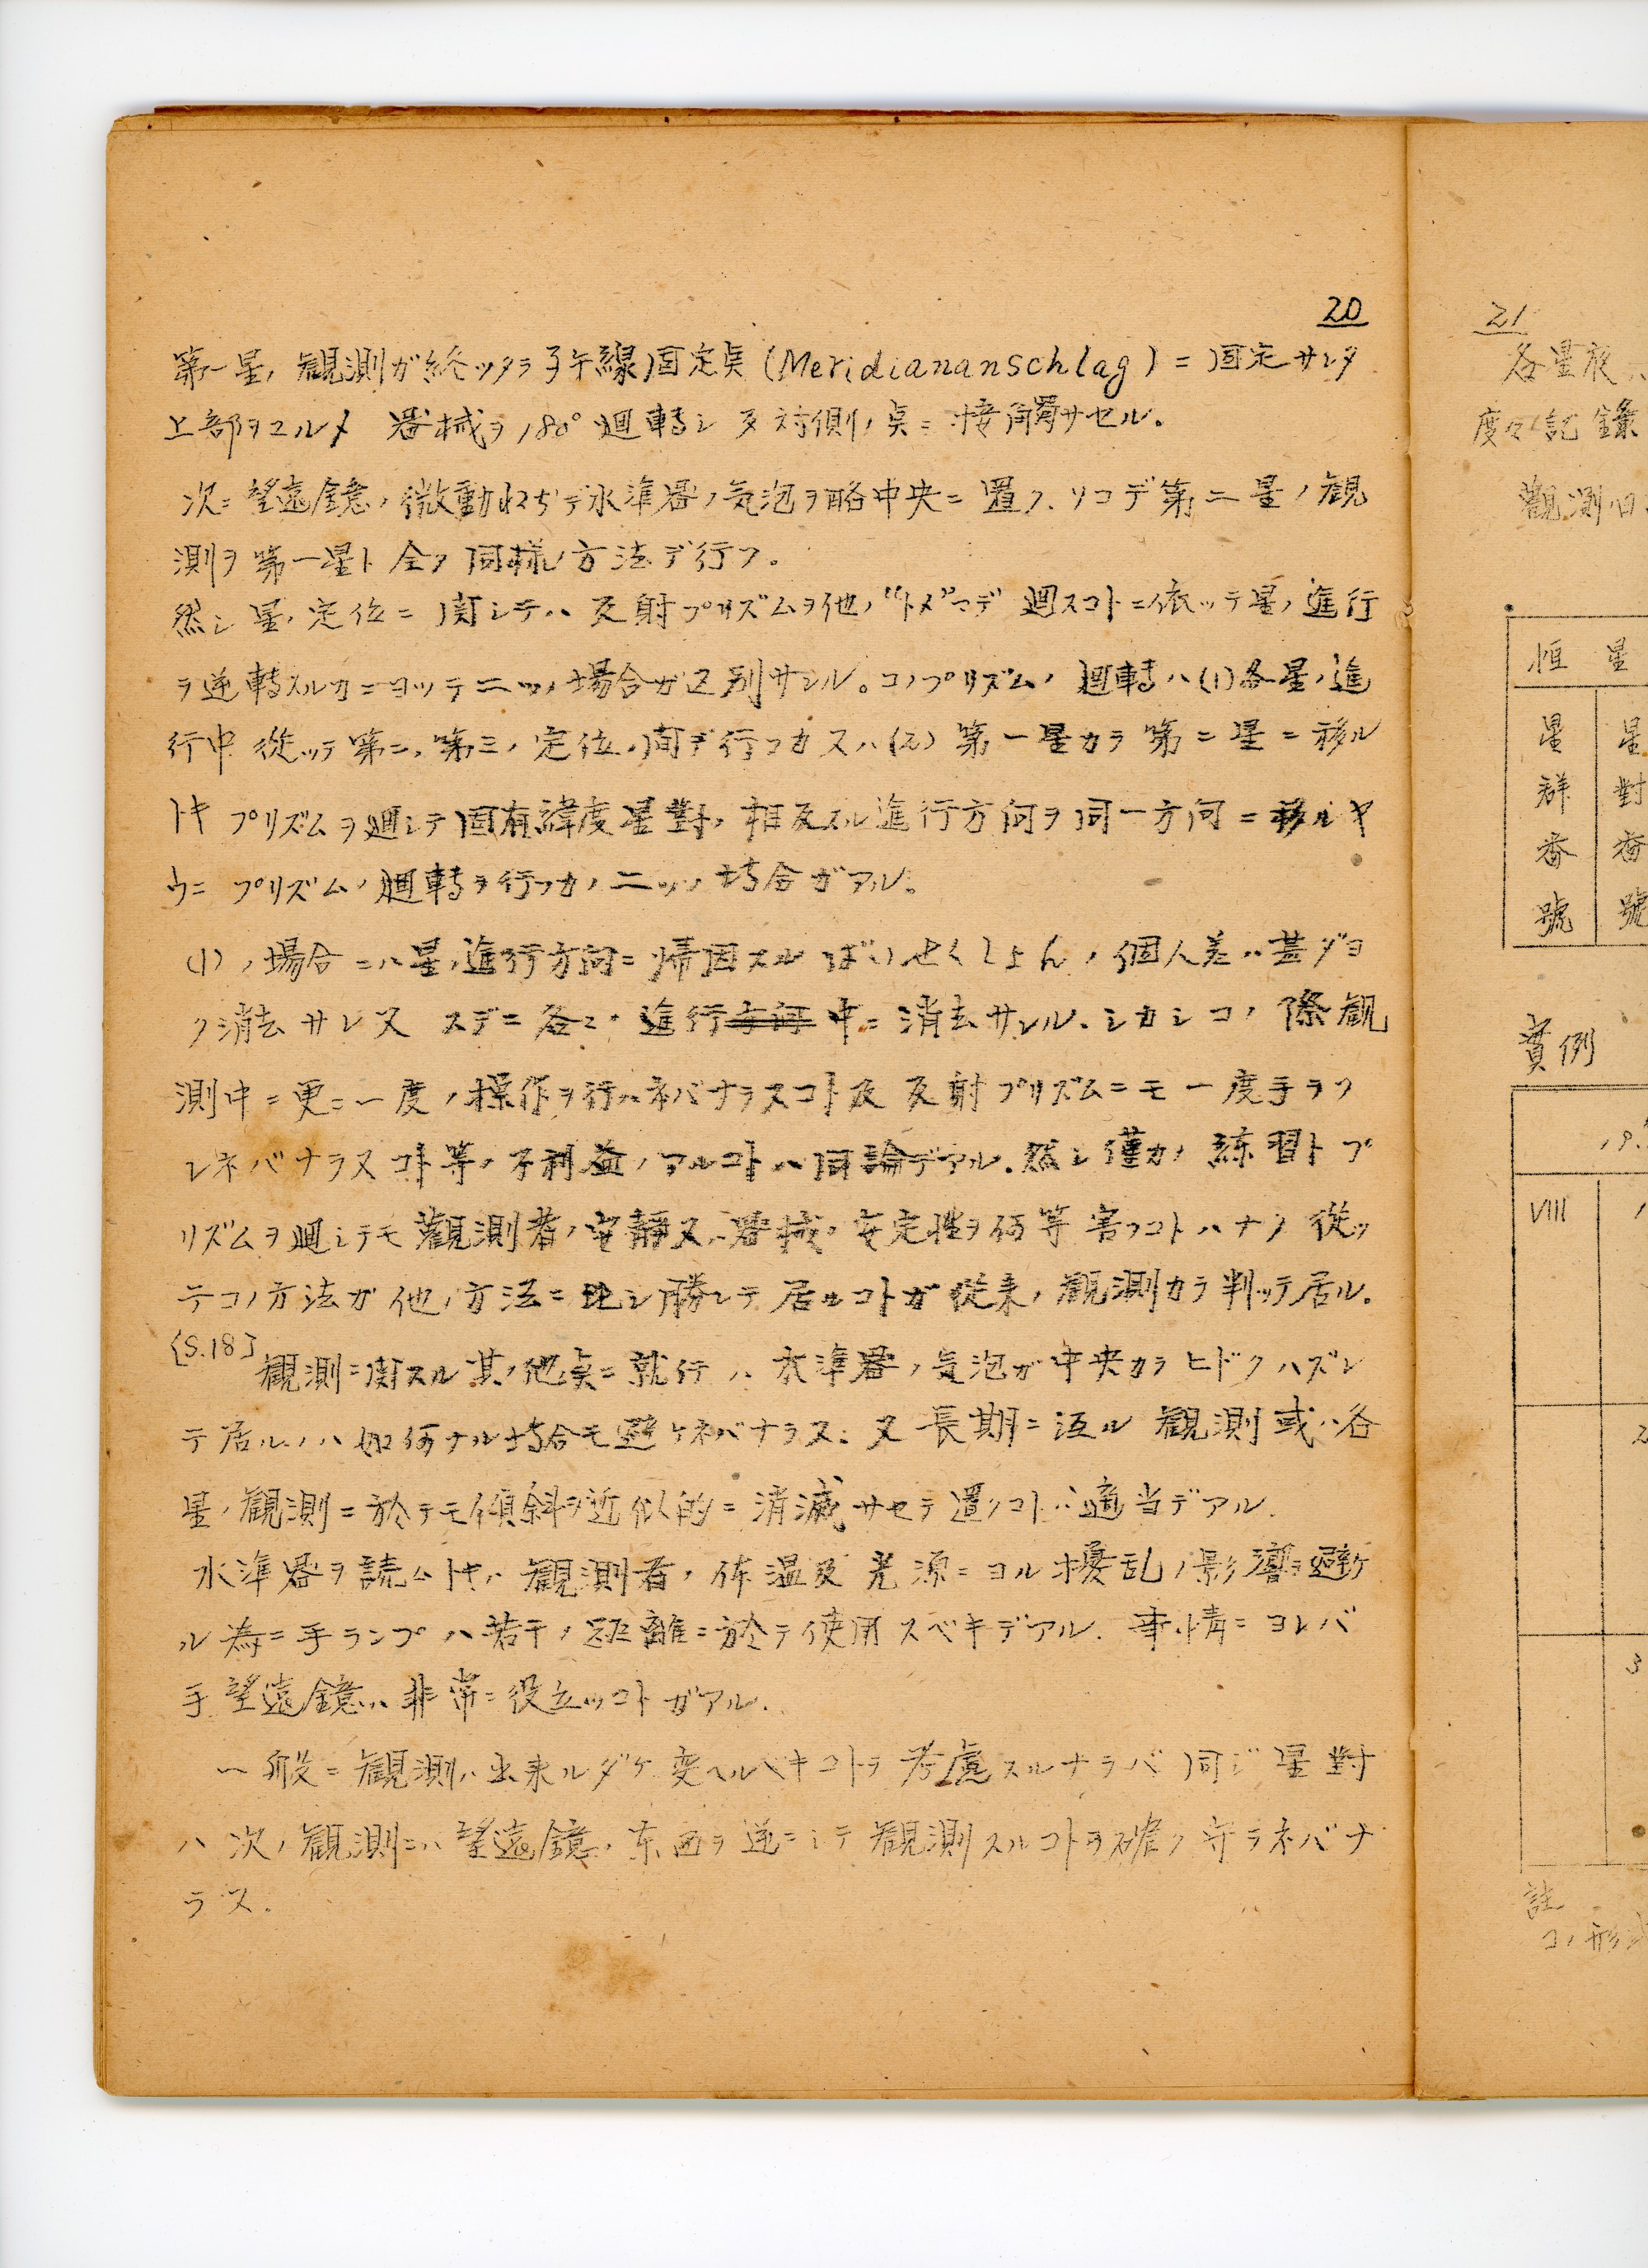 20
第一星ノ観測ガ終ッタラ子午線固定点(Meridiananschlag)ニ固定サレタ
上部ヲユルメ 器械ヲ180°廻轉シ反対側ノ点ニ接觸サセル。
次ニ望遠鏡ノ微動ねぢデ水準器ノ気泡ヲ略中央ニ置ク.ソコデ第二星ノ観
測ヲ第一星ト全ク同様ノ方法デ行フ。
然シ星ノ定位ニ関シテハ反射プリズムヲ他ノ"トメ"マデ廻スコトニ依ッテ星ノ進行
ヲ逆轉スルカニヨッテ二ッノ場合ガ区別サレル。コノプリズムノ廻轉ハ(1)各星ノ進
行中 從ッテ第二,第三ノ定位ノ間デ行フカ又ハ(2)第一星カラ第二星ニ移ル
トキ プリズムヲ廻シテ固有緯度星對ノ相反スル進行方向ヲ同一方向ニ移ルヤ
ウニ プリズムノ廻轉ヲ行フカノ二ッノ場合ガアル。
(1)ノ場合ニハ星ノ進行方向ニ帰因スルばいせくしょんノ個人差ハ甚ダヨ
ク消去サレ又 スデニ各々ノ進行方向中ニ消去サレル.シカシコノ際観
測中ニ更ニ一度ノ操作ヲ行ハネバナラヌコト及反射プリズムニモ一度手ヲフ
レネバナラヌコト等ノ不利益ノアルコトハ勿論デアル.然シ僅カノ練習トプ
リズムヲ廻シテモ觀測者ノ安靜又ハ器械ノ安定性ヲ何等害フコトハナク 從ッ
テコノ方法ガ他ノ方法ニ比シ勝レテ居ルコトガ從来ノ観測カラ判ッテ居ル。
[S.18]
観測ニ関スル其ノ他点ニ就テハ 水準器ノ気泡ガ中央カラヒドクハズレ
テ居ルノハ如何ナル場合モ避ケネバナラヌ.又長期ニ亙ル観測或ハ各
星ノ観測ニ於テモ傾斜ヲ近似的ニ消滅サセテ置クコトハ適当デアル.
水準器ヲ読ムトキハ観測者ノ体温及光源ニヨル擾乱ノ影響ヲ避ケ
ル為ニ手ランプハ若干ノ距離ニ於テ使用スベキデアル.事情ニヨレバ
手望遠鏡ハ非常ニ役立ッコトガアル.
一般ニ観測ハ出来ルダケ変ヘルベキコトヲ考慮スルナラバ同ジ星對
ハ次ノ観測ニハ望遠鏡ノ東西ヲ逆ニシテ観測スルコトヲ確ク守ラネバナ
ラヌ.
21
各星夜
度々記録
觀測
恒 星
星群番號
星對番號
實例
19.
VIII
1
2
3
註
コノ形式